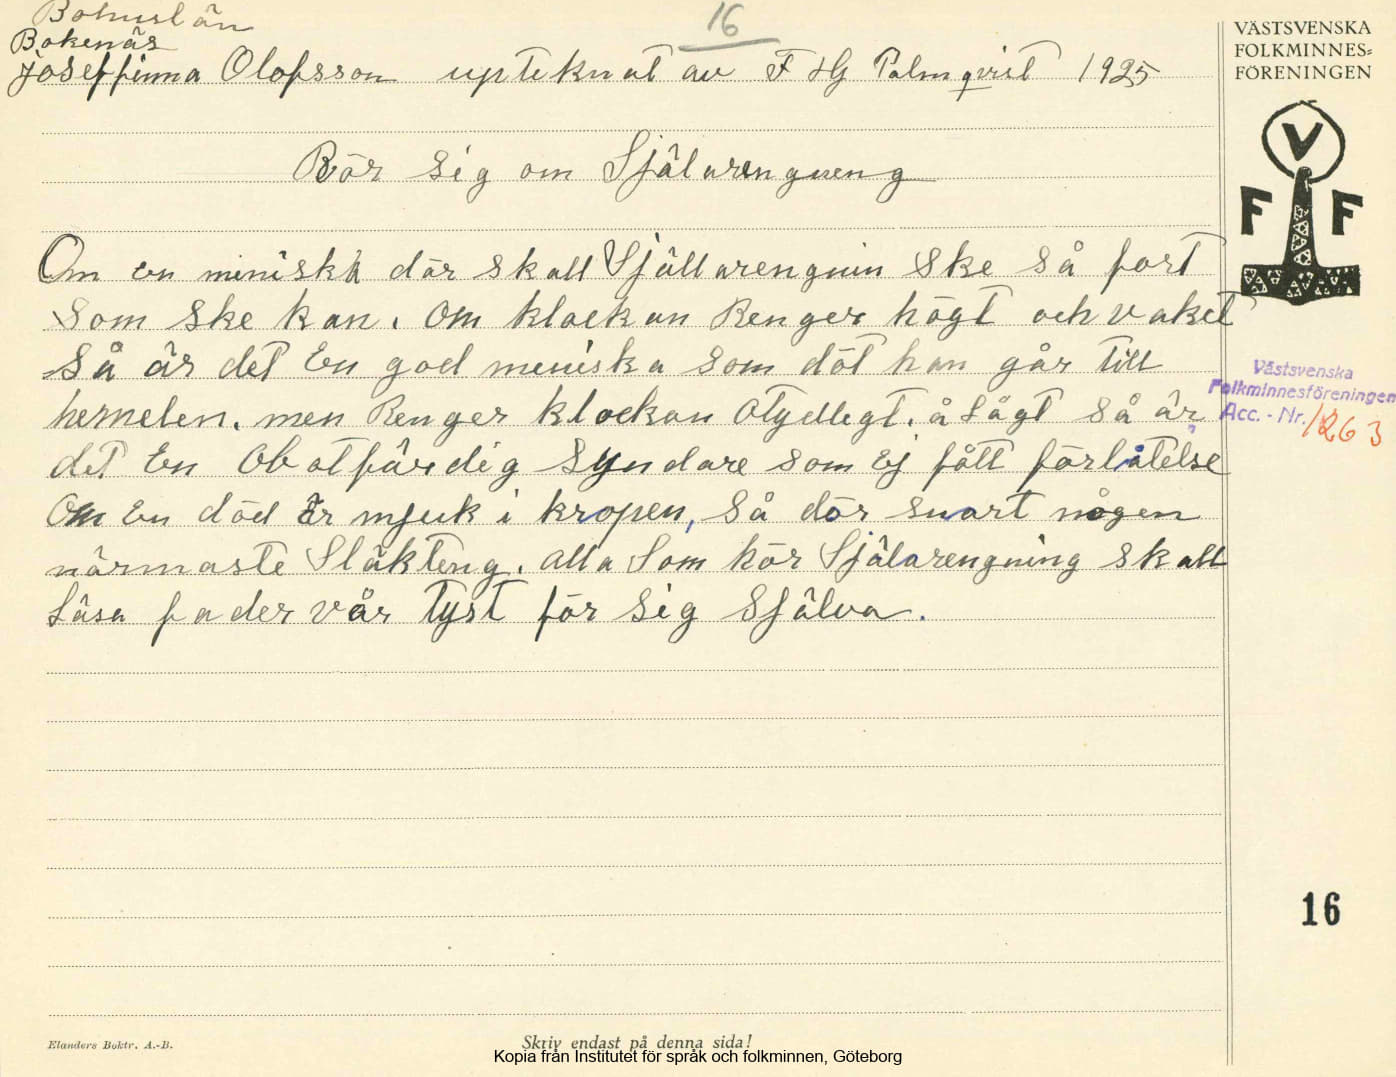 Bohuslän
Bokenäs
16
Joseffinna Olofsson upteknat av F HG Palmqvist 1925
VÄSTSVENSKA
FOLKMINNES=
FÖRENINGEN
V
F F
Rör sig om Själarengneng
Om en miniska dör skall Själlarengnin Ske så fort
Som Ske kan. Om klockan Renger högt och vaket
Så är det En god meniska som döt han går till
hemelen. men Renger klockan Otydlegt. å Lågt så är
det En Obotfärdig Syndare som Ej fått förlåtelse
Om En död Är mjuk i kropen, Så dör snart någon
närmaste Släkteng. alla Som hör Själarengning skall
Läsa fader vår tyst för sig Själva.
Västsvenska
Folkminnesföreningen
Acc. - Nr. 1263
16
Elanders Boktr. A.-B.
Skriv endast på denna sida!
Kopia från Institutet för språk och folkminnen, Göteborg